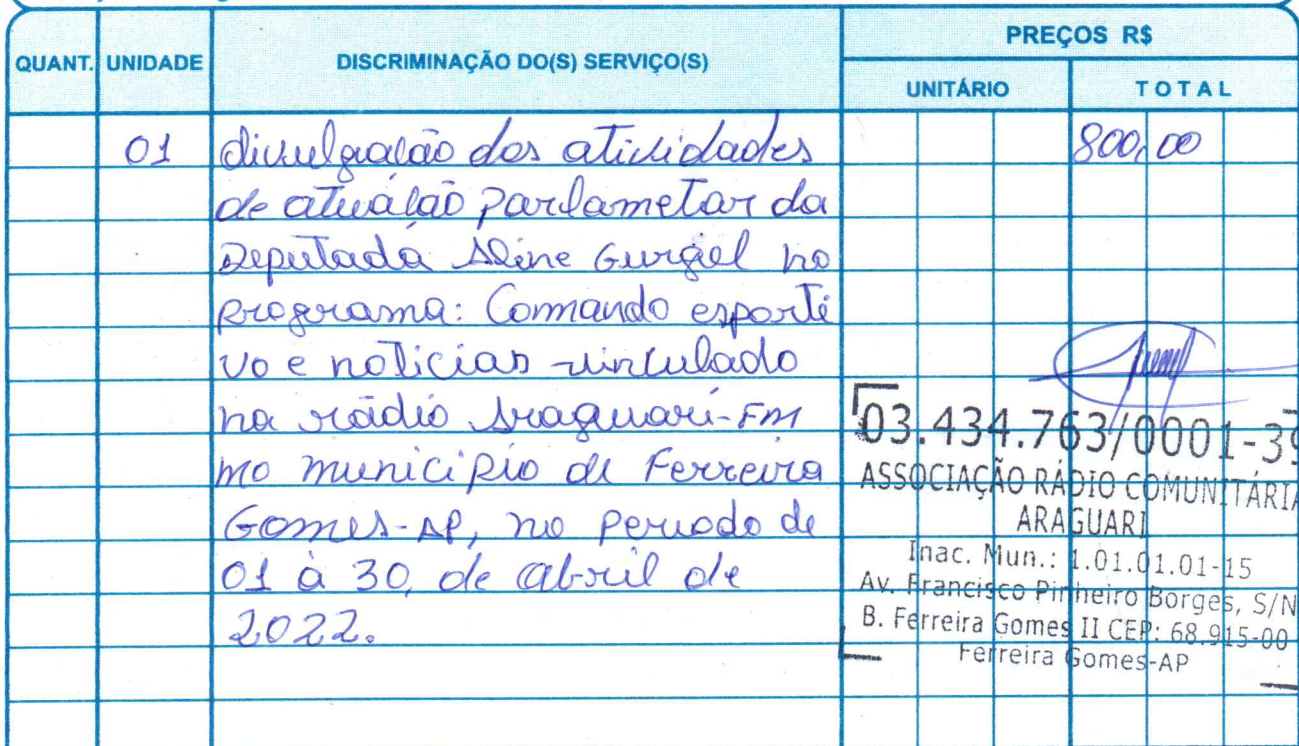 PREÇOS R$
QUANT. UNIDADE DISCRIMINAÇÃO DO(S) SERVIÇO(S)
UNITÁRIO TOTAL
01 divulgação das atividades 800,00
de atuação parlametar da
Deputada Aline Gurgel no
programa: Comando esporti
vo e noticias vinculado
na rádio Araguari-FM
no municipio de Ferreira
Gomes-AP, no periodo de
01 à 30, de abril de
2022.
03.434.763/0001-39
ASSOCIAÇÃO RÁDIO COMUNITÁRIA
ARAGUARI
Inac. Mun.: 1.01.01.01-15
Av. Francisco Pinheiro Borges, S/N
B. Ferreira Gomes II CEP: 68.915-00
Ferreira Gomes-AP